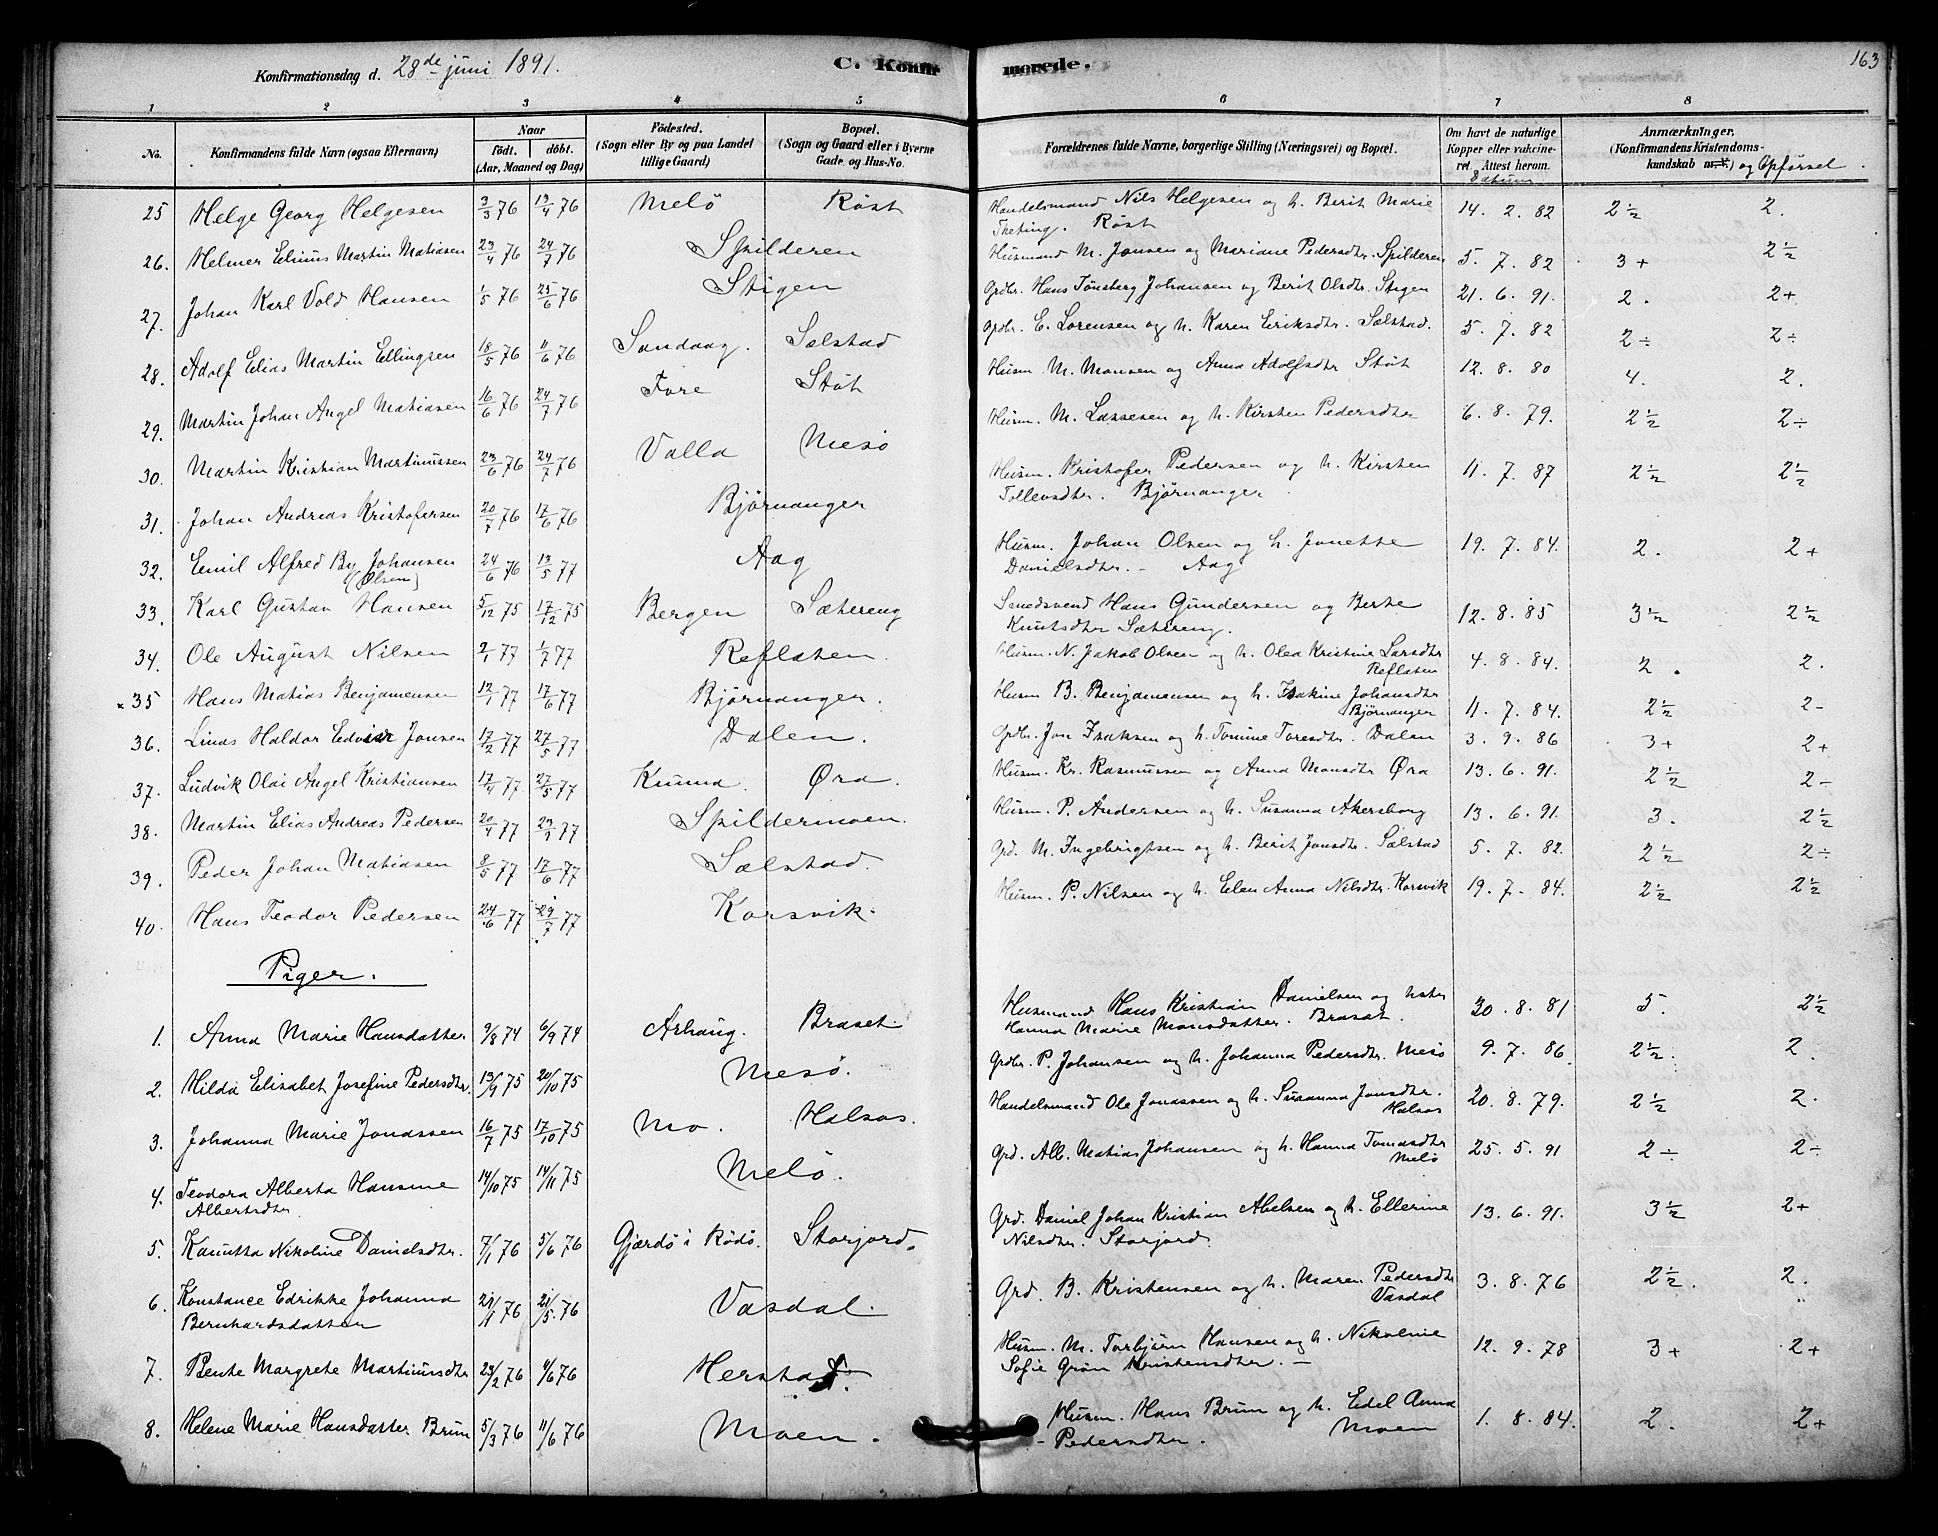 Konfirmationsdag d. 28de juni 1891. C. Konfir morede. 163
1 2 3 4 5 6 7 8
No. Konfirmandens fulde Navn (ogsaa Efternavn) Naar født. døbt. (Aar, Maaned og Dag) Fødested. (Sogn eller By og paa Landet tillige Gaard) Bopæl. (Sogn og Gaard eller i Byerne Gade og Hus-No. Forældrenes fulde Navne, borgerlige Stilling (Næringsvei) og Bopæl. Om havt de naturlige Kopper eller vakcineret. Attest herom. Datum Anmærkninger, (Konfirmandens Kristendomskundskab m. V.) og Opførsel.
25 Helge Georg Helgesen 3/3 76 13/4 76 Melö Röst Handelsmand Nils Helgesen og h. Berit Marie Theting. Röst 14. 2. 82 2½ 2.
26. Helmer Elinus Martin Matiasen 23/4 76 24/7 76 Spilderen Husmand M. Jonsen og Mariane Pedersdtr. Spilderen 5. 7. 82 3+ 2½
27. Johan Karl Vold Hansen 1/5 76 25/6 76 Stigen Grdbr. Hans Tönsberg Johansen og Berit Olsdtr. Stigen 21. 6. 91. 2. 2+
28. Adolf Elias Martin Ellingsen 18/5 76 11/6 76 Sandaag. Sælstad Grdbr. E. Lorensen og h. Karen Eriksdtr. Sælstad. 5. 7. 82 2÷ 2÷
29. Martin Johan Angel Matiasen 16/6 76 24/7 76 Fore Stöt Husm. M. Monsen og Anna Adolfsdtr Stöt 12. 8. 80 4. 2.
30. Martin Kristian Martinussen 23/6 76 24/7 76 Valla Mesö Husm. M. Lassesen og h. Kirsten Pedersdtr 6. 8. 79. 2½ 2÷
31. Johan Andreas Kristofersen 20/7 76 17/6 76 Björnanger Husm. Kristofer Pedersen og h. Kirsten Tollevsdtr. Björnanger. 11. 7. 87 2½ 2½
32. Emil Alfred By Johansen (Olsen) 24/6 76 13/5 77 Aag Husm. Johan Olsen og h. Jonette Danielsdtr. - Aag 19. 7. 84. 2. 2+
33. Karl Gustav Hansen 5/12 75 17/12 75 Bergen Sætereng Smedsvend Hans Gundersen og Berte Knutsdtr Sætereng. 12. 8. 85 3½ 2½
34. Ole August Nilsen 2/1 77 1/7 77 Reflaten. Husm. N. Jakob Olsen og h. Olea Kristine Larsdtr Reflaten 4. 8. 84. 2. 2.
x 35 Hans Matias Benjamensen 12/1 77 17/6 77 Björnanger. Husm B. Benjamensen og h. Isakine Johansdtr Björnanger 11. 7. 84. 2½ 2-
36. Linas Haldor Edvin Jonsen 17/2 77 27/5 77 Dalen. Grdbr. Jon Isaksen og h. Tomine Toresdtr. Dalen 3. 9. 86 3+ 2+
37. Ludvik Olai Angel Kristiansen 17/4 77 27/5 77 Kunna. Øra. Husm. Kr. Rasmussen og Anna Monsdtr Øra 13. 6. 91. 2½ 2÷
38. Martin Elias Andreas Pedersen 20/4 77 77 Spildermoen. Husm. P. Andersen og h. Susanna Akersborg 13. 6. 91. 3. 2½
39. Peder Johan Matiasen 8/5 77 17/6 77 Sælstad. Grd. M. Ingebrigtsen og h. Berit Jonsdtr. Sælstad 5. 7. 82. 2½ 2÷
40. Hans Teodor Pedersen 24/6 77 29/7 77 Korsvik. Husm. P. Nilsen og h. Elen Anna Nilsdtr. Korsvik 19. 7. 84. 2½ 2½
Piger.
1. Anna Marie Hansdatter 9/8 74 6/9 74 Arhaug. Braset. Husmand Hans Kristian Danielsen og Hanna Marie Monsdatter. Braset. 30. 8. 81 5. 2½
2. Hilda Elisabet Josefine Pedersdtr. 13/9 75 20/10 75 Mesö. Grdbr. P. Johansen og h. Johanna Pedersdtr. Mesö 9. 7. 86. 2½. 2.
3. Johanna Marie Jonassen 16/7 75 17/10 75 Mo. Halsos. Handelsmand Ole Jonassen og h. Susanna Jonsdtr. Halsos 20. 8. 79. 2½ 2.
4. Teodora Alberta Hansine Albertsdtr 14/10 75 14/11 75 Melö. Grd. Alb. Matias Johansen og h. Hanna Tomasdtr Melö 25. 5. 91 2÷ 2÷
5. Kanutta Nikoline Danielsdtr. 7/1 76 5/6 76 Gjærdö i Rödö. Storjord. Grd. Daniel Johan Kristian Abelsen og h. Ellerine Nilsdtr. Storjord. 13. 6. 91. 3½ 2+
6. Konstance Edrikke Johanna Bernhardsdatter 76 21/5 76 Vasdal. Grd. B. Kristensen og h. Maren Pedersdtr Vasdal 3. 8. 76 2½. 2.
7. Bente Margrete Martinusdtr 23/2 76 4/6 76 Herstad. Husm. M. Torbjörn Hansen og h. Nikoline Sofie Grön Kristensdtr. - 12. 9. 78 3+ 2+
8. Helene Marie Hansdatter Brun 5/3 76 11/6 76 Moen. Husm. Hans Brun og h. Edel Anna Pedersdtr. Moen 1. 8. 84. 2. 2+